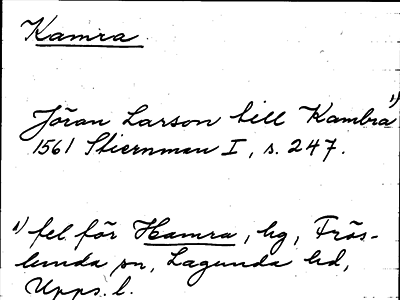 Kamra
Jöran Larson till Kambra 1)
1561 Stiernman I, s. 247.
1) fel för Hamra, hg, Frös-
lunda sn, Lagunda hd,
Upps. l.